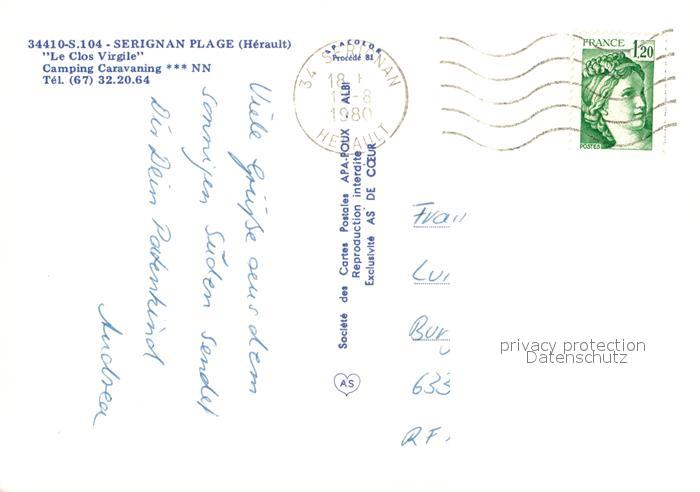 34410-S.104 - SERIGNAN PLAGE (Hérault)
"Le Clos Virgile"
Camping Caravaning *** NN
Tél. (67) 32.20.64
APACOLOR
Procédé 81
34 SERIGNAN
18 H
1980
HERAULT
FRANCE
1,20
POSTES
Viele Grüße aus dem
sonnigen Süden sendet
Dir Dein Patenkind
Andrea
Société des Cartes Postales APA-POUX - ALBI
Reproduction interdite
Exclusivité AS DE CŒUR
AS
Frau
Lui
Bur
633
RF
privacy protection
Datenschutz